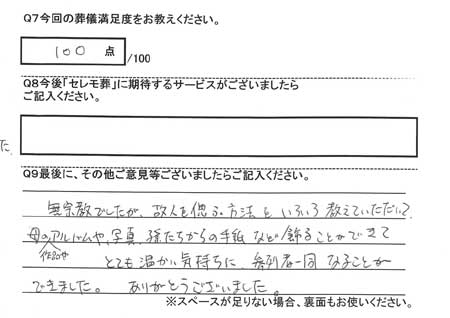 Q7今回の葬儀満足度をお教えください。
100 点 /100
Q8今後「セレモ葬」に期待するサービスがございましたら
ご記入ください。
た
Q9最後に、その他ご意見等ございましたらご記入ください。
無宗教でしたが、故人を偲ぶ方法をいろいろ教えていただいて、
母のアルバムや、写真、孫たちからの手紙など飾ることができて
作品や
とても温かい気持ちに、参列者一同なることが
できました。 ありがとうございました。
※スペースが足りない場合、裏面もお使いください。